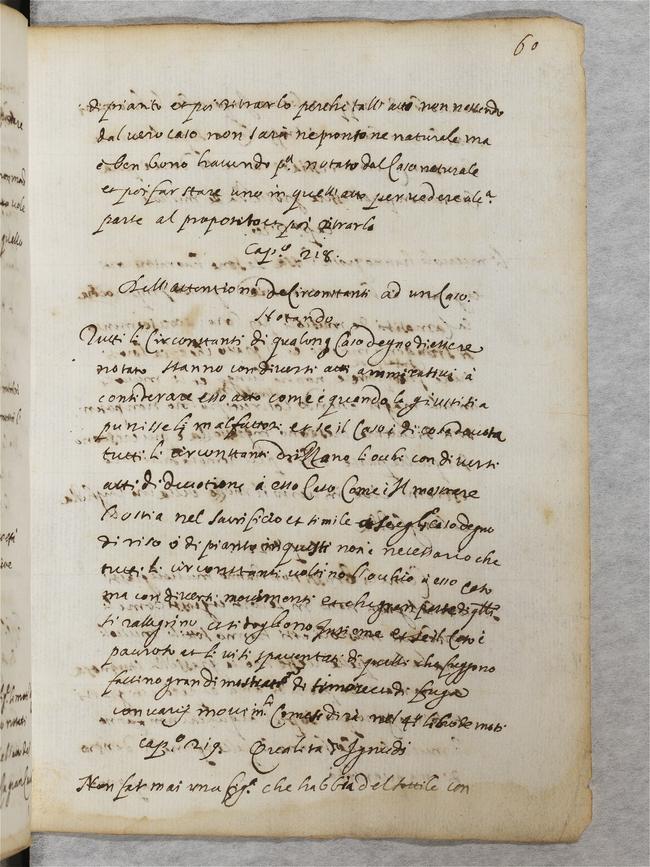 60
di pianto et poi ritrarlo perche tall' atto non nascendo
dal vero caso non sara ne pronto ne naturale ma
è ben bono havendo p.ª notato dal Caso naturale
et poi far stare uno in quell' atto per vedere alc.ª
parte al proposito et poi ritrarlo
Cap.º 218.
Dell' attentione de Circonstanti ad un Caso.
Notando
Tutti li Circonstanti di qualonq Caso degno di essere
notato stanno con diversi atti ammirativi à
considerare esso atto come è quando la giustitia
punisse li malfattori et se il Caso è di cosa devota
tutti li circonstanti drizzano li ochi con diversi
atti di devotione à esso Caso Come è Il mostrare
l'hostia nel sacrificio et simile se egli è caso degno
di riso ò di pianto in questi non è necessario che
tutti li circonstanti voltino l'ochio à esso Caso
ma con diversi movimenti et che gran parte di
si rallegrino ò si dogliono Insieme et se il Caso è
pauroso et li visi spaventati di quelli che fuggono
faccino gran di timore et di fuga
con varij movim.ti Come si dirà nel 4º libro de moti
Cap.º 219. Qualita d' Ignudi
Non far mai una fig.ª che habbia del sottile con